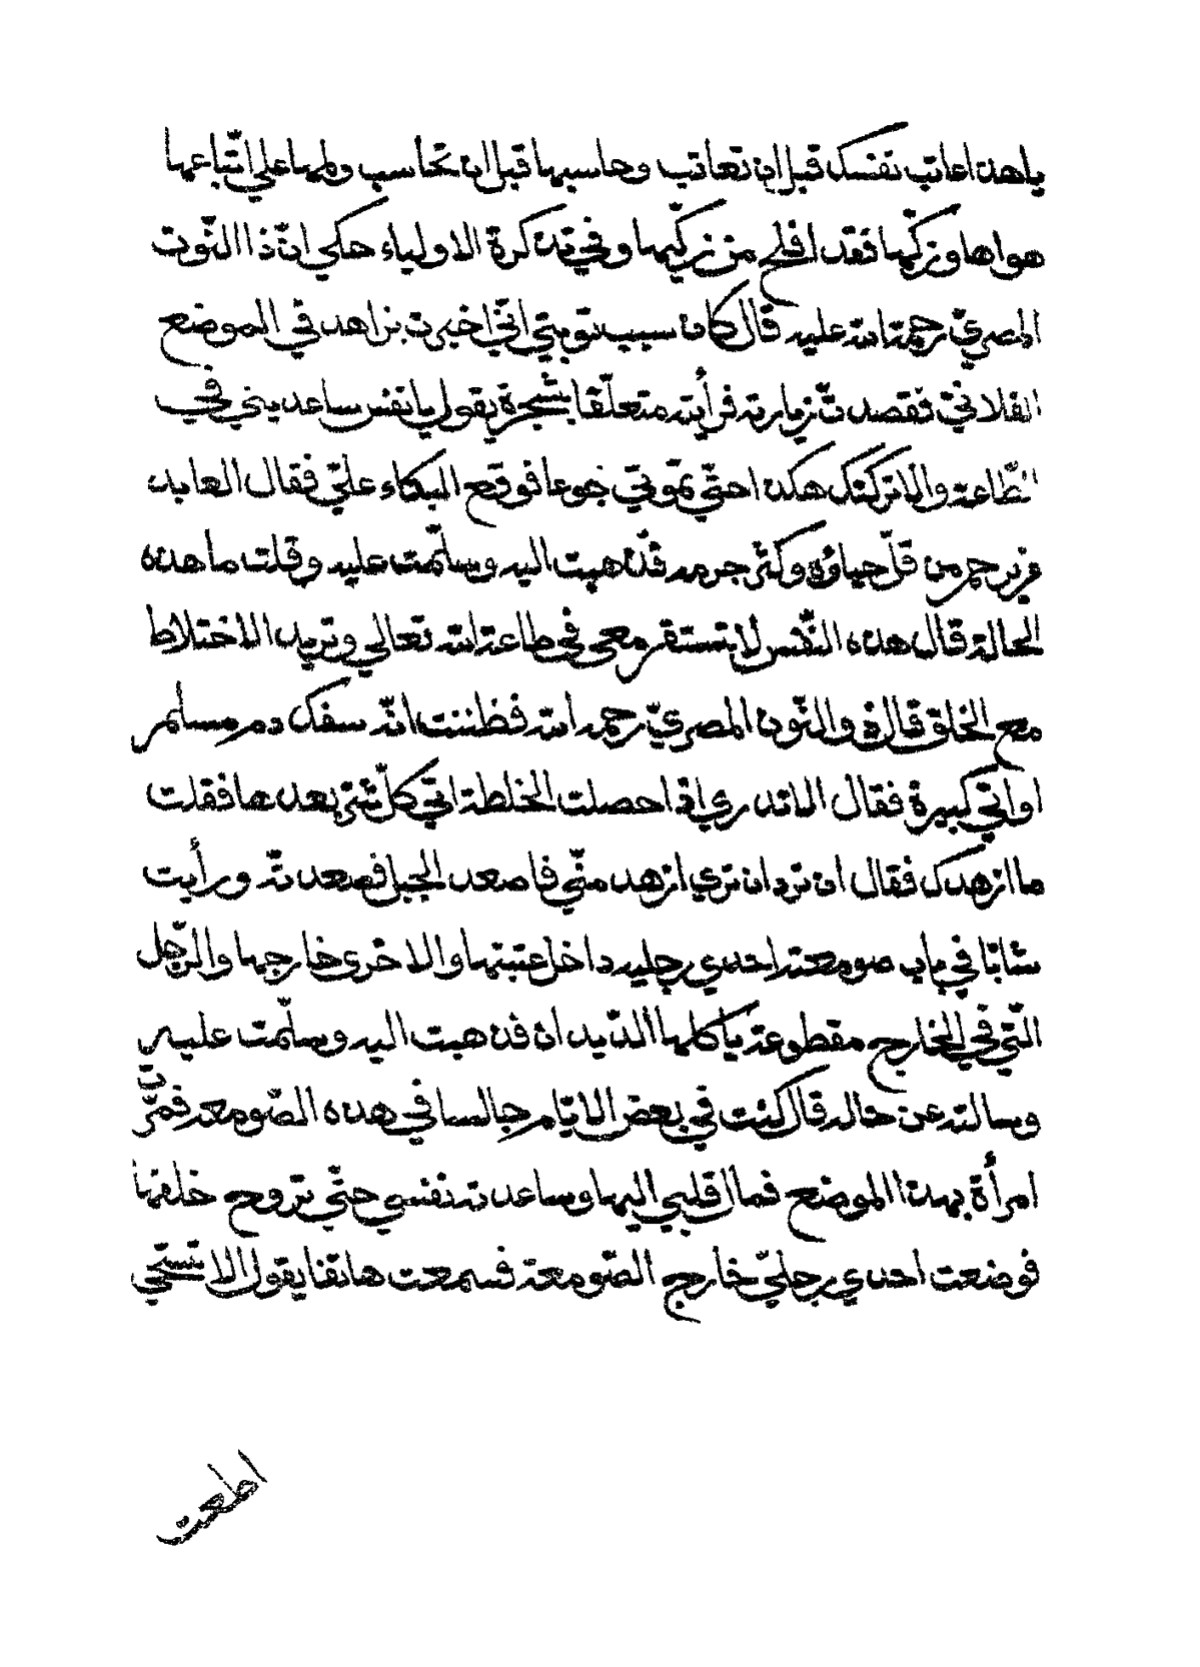 ياهذا عاتب نفسك قبل ان تعاتب وحاسبها قبل ان تحاسب ولمها علي اتّباعها
هواها وزكّها فقد افلح من زكّيها وفي تذكرة الاولياء حكي انّ ذا النّون
المصريّ رحمة الله عليه قال كان سبب توبتي انّي اخبرت بزاهد في الموضع
الفلانيّ فقصدتّ زيارته فرأيته متعلّقا بشجرة يقول يا نفس ساعديني في
الطّاعة والا تركتك هكذا حتّي تموتي جوعا فوقع البكاء عليّ فقال العابد
من يرحم من قلّ حياؤه وكثر جرمه فذهبت اليه وسلّمت عليه وقلت ما هذه
الحالة قال هذه النّفس لا تستقر معي في طاعة الله تعالي وتريد الاختلاط
مع الخلق قال ذو النّون المصريّ رحمه الله فظننت انّه سفك دم مسلم
او اتي كبيرة فقال اما تدري اذا حصلت الخلطة اتي كلّ شئ بعدها فقلت
ما ازهدك فقال ان ترد ان تري ازهد منّي فاصعد الجبل فصعدتّه ورأيت
شابّا في باب صومعة احدي رجليه داخل عتبتها والاخري خارجها والرّجل
الّتي في الخارج مقطوعة يأكلها الدّيدان فذهبت اليه وسلّمت عليه
وسالته عن حاله قال كنت في بعض الايّام جالسا في هذه الصّومعة فمرّت
امرأة بهذا الموضع فمال قلبي اليها وساعدته نفسي حتّي تروح خلفها
فوضعت احدي رجليّ خارج الصّومعة فسمعت هاتفا يقول الا تستحي
اطعت